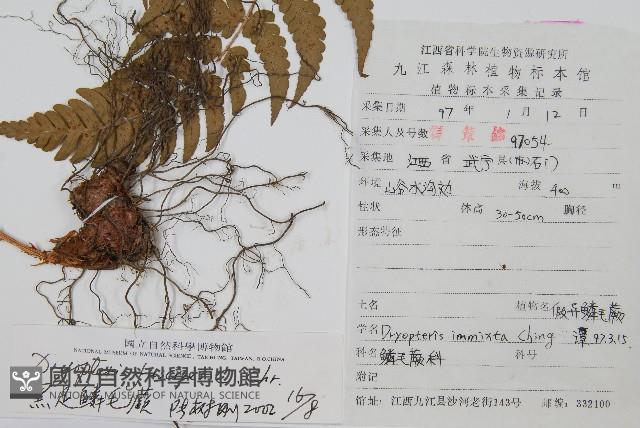 江西省科学院生物资源研究所
九江森林植物标本馆
植物标本采集记录
采集日期 97 年 1 月 12 日
采集人及号数 97054
采集地 江西 省 武宁 县(市)石门
环境 山谷水沟边 海拔 400 m
性状 体高 30-50cm 胸径
形态特征
土名 植物名 假异鳞毛蕨
学名 Dryopteris immixta Ching 谭 97.3.15
科名 鳞毛蕨科 科号
附记
馆址:江西九江县沙河老街143号 邮编:332100
國立自然科學博物館
NATIONAL MUSEUM OF NATURAL SCIENCE, TAICHUNG, TAIWAN, R.O.CHINA
黑足鱗毛蕨 2002 16/8
國立自然科學博物館
NATIONAL MUSEUM OF NATURAL SCIENCE